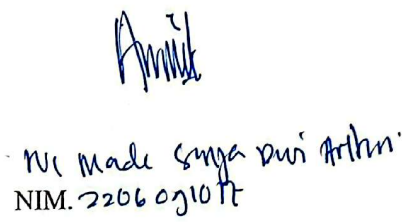 Ni Made Surya Dwi Arthn.
NIM. 2206091017